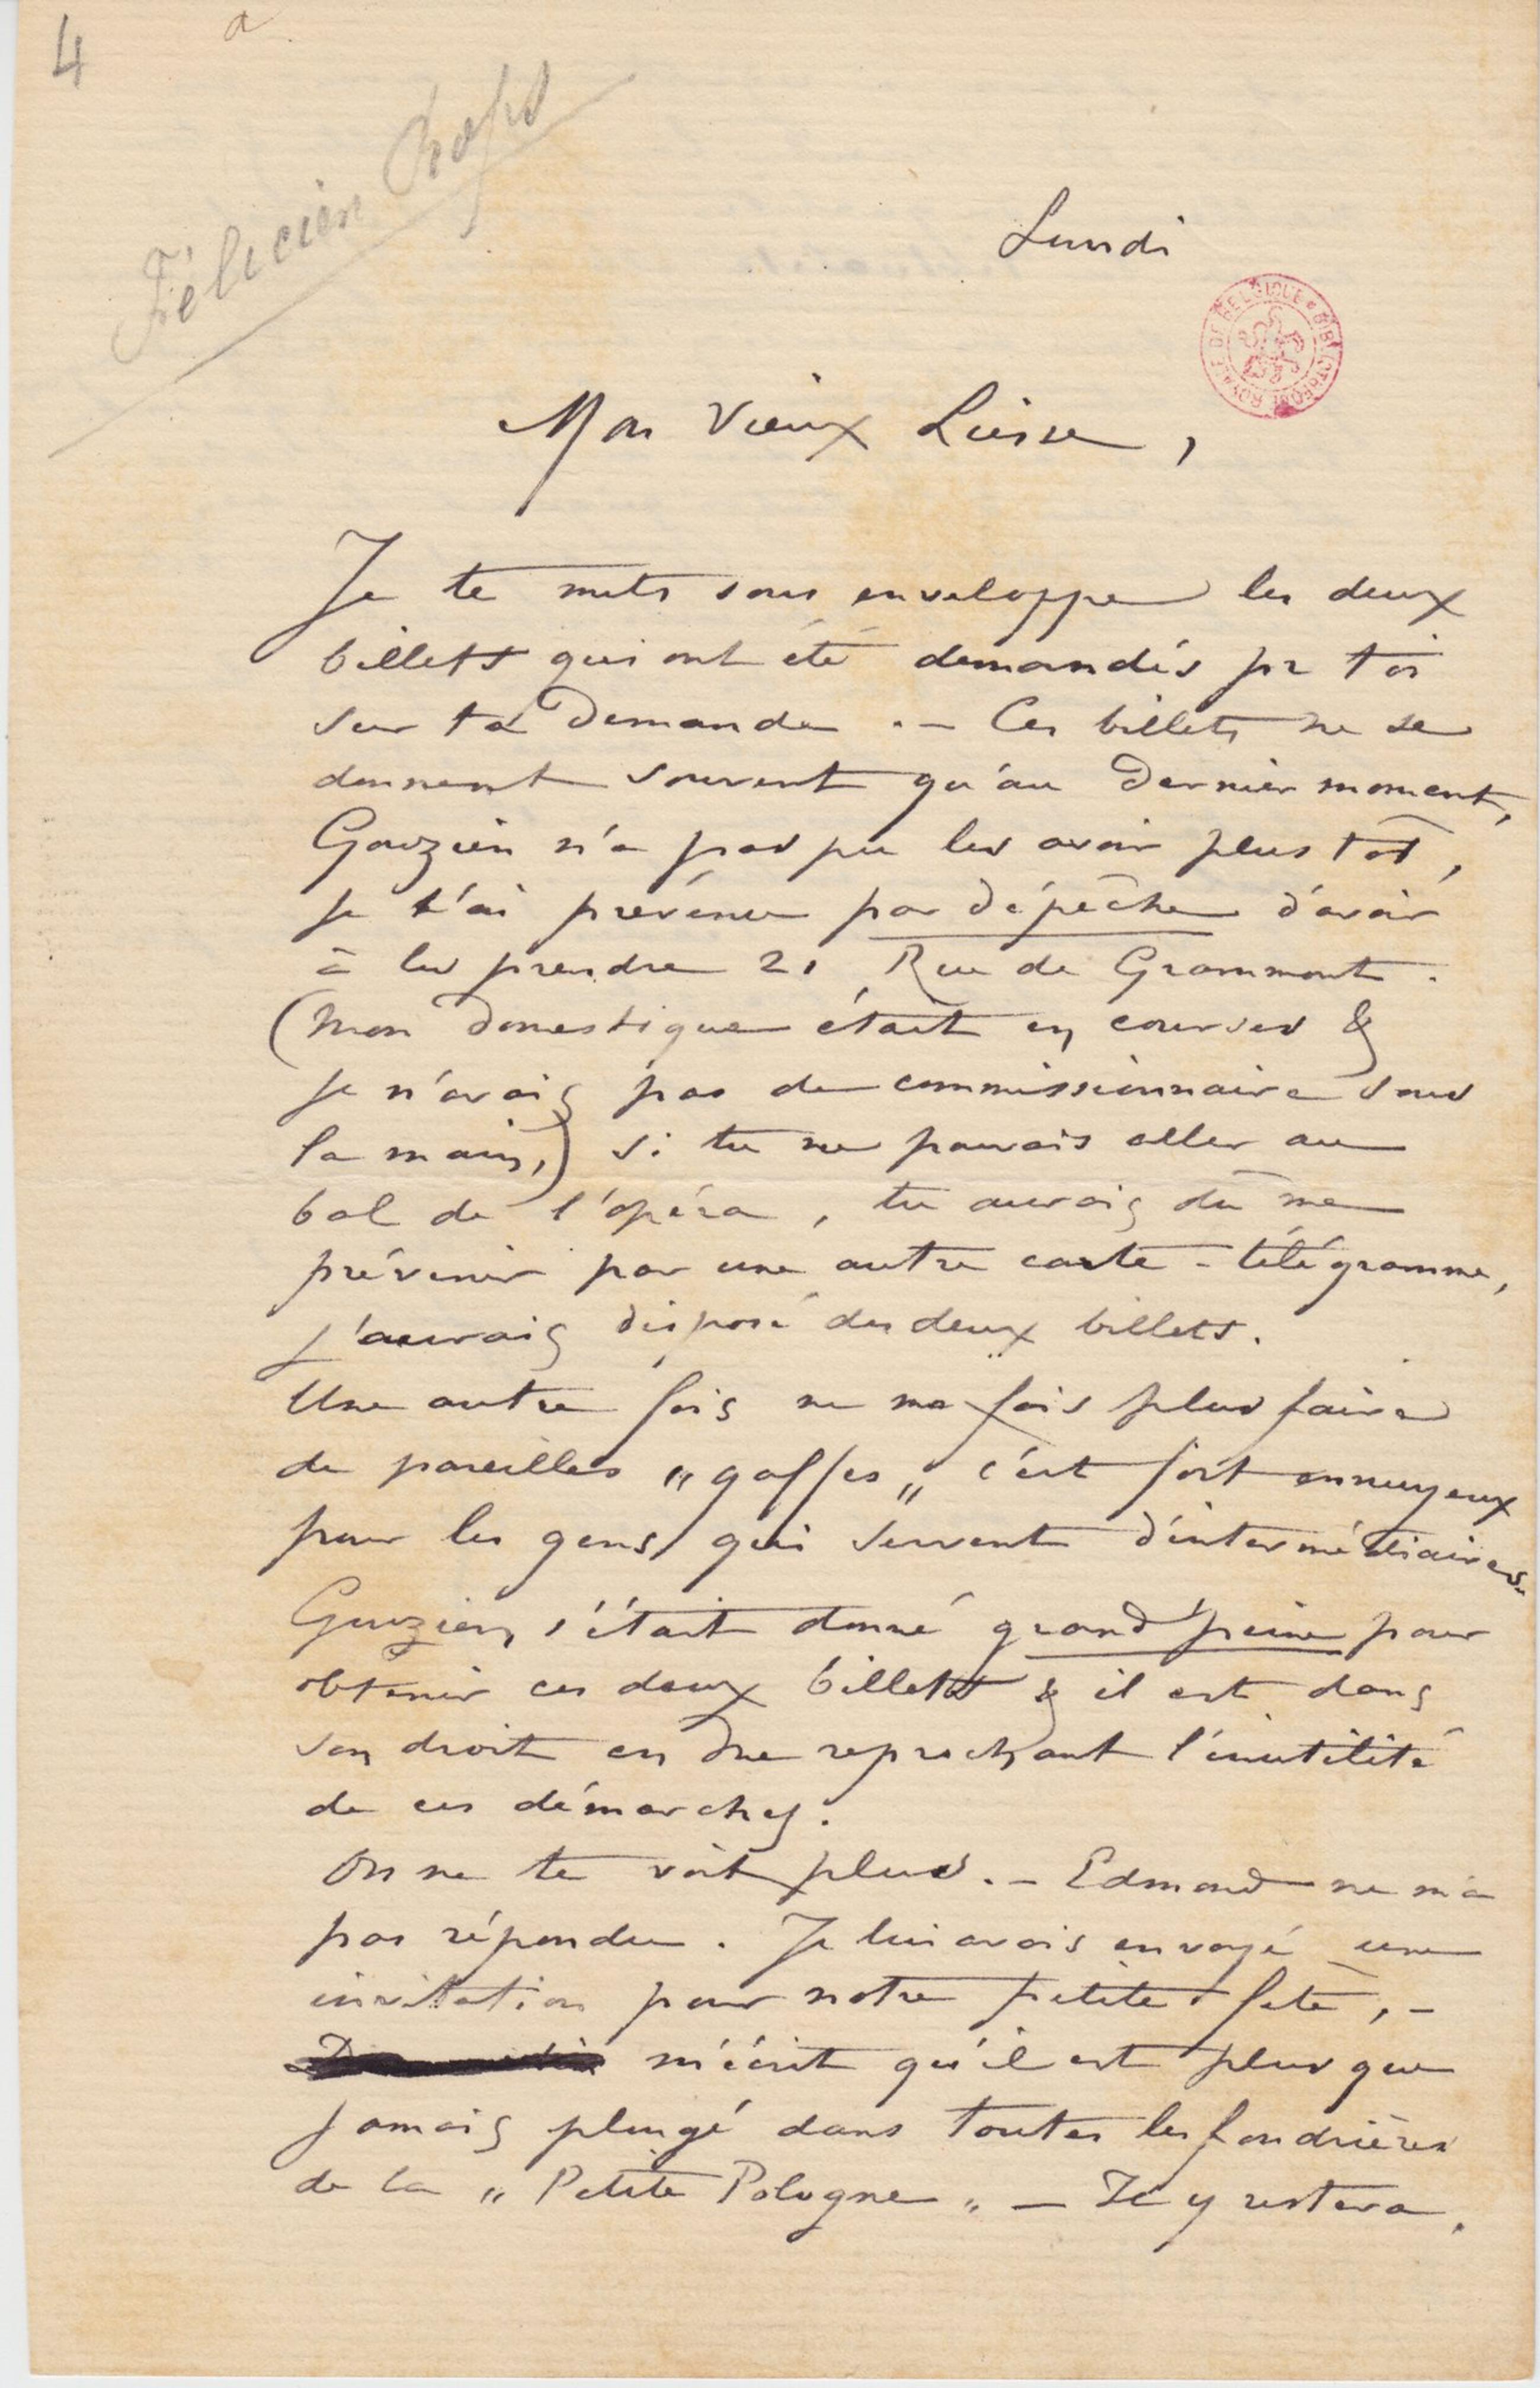 4
a
Félicien Rops
Lundi
BIBLIOTHÈQUE ROYALE DE BELGIQUE
Mon Vieux Liesse,
Je te mets sous enveloppe les deux
billets qui ont été demandés pr toi
sur ta demande .– Ces billets ne se
donnent souvent qu'au dernier moment,
Gouzien n'a pas pu les avoir plus tôt,
je t'ai prévenu par dépêche d'avoir
à les prendre 21 Rue de Grammont.
(mon domestique était en courses &
je n'avais pas de commissionnaire sous
la main,) si tu ne pouvais aller au
bal de l'opéra, tu aurais dû me
prévenir par une autre carte-télégramme,
j'aurais disposé des deux billets.
Une autre fois ne me fais plus faire
de pareilles „gaffes„ c'est fort ennuyeux
pour les gens qui servent d'intermédiaires.
Gouzien s'était donné grand'peine pour
obtenir ces deux billets & il est dans
son droit en me reprochant l'inutilité
de ces démarches.
On ne te voit plus .– Edmond ne m'a
pas répondu. Je lui avais envoyé une
invitation pour notre petite fête, –
m'écrit qu'il est plus que
jamais plongé dans toutes les fondrières
de la „Petite Pologne„ – Il y restera.